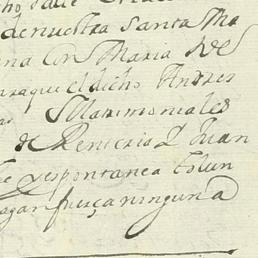 de nuestra Santa Ma
na Con Maria de
paraque el dicho Andres
Matrimoniales
de Renteria Y Juan
e yespontanea Volun
fuerça ninguna